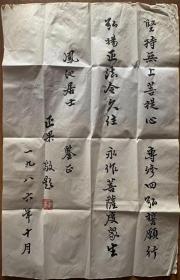 堅持無上菩提心 專修四弘誓願行
弘揚正法令久住 永作菩薩度眾生
鳳池居士 鑒正
正果 敬題
一九八六年十月